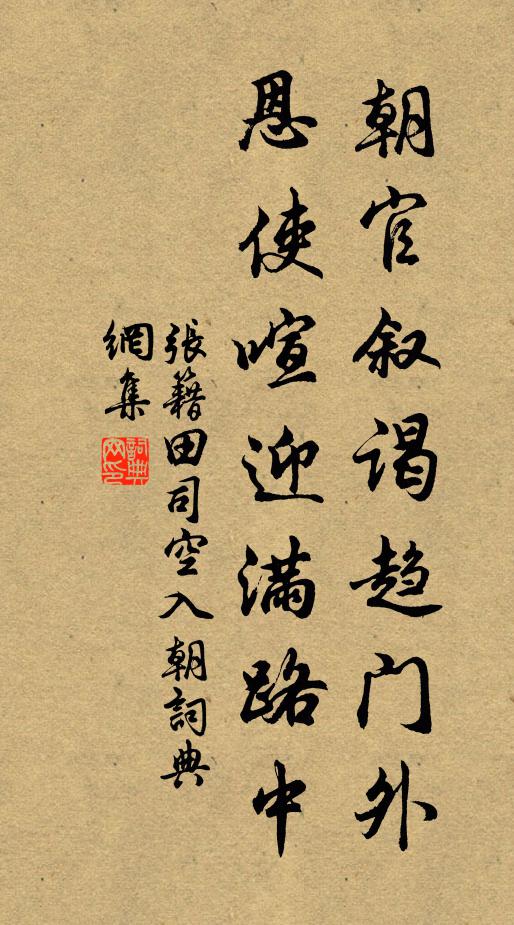 朝官叙谒趋门外
恩使喧迎满路中
張籍田司空入朝詞典
網集
詞典
网印